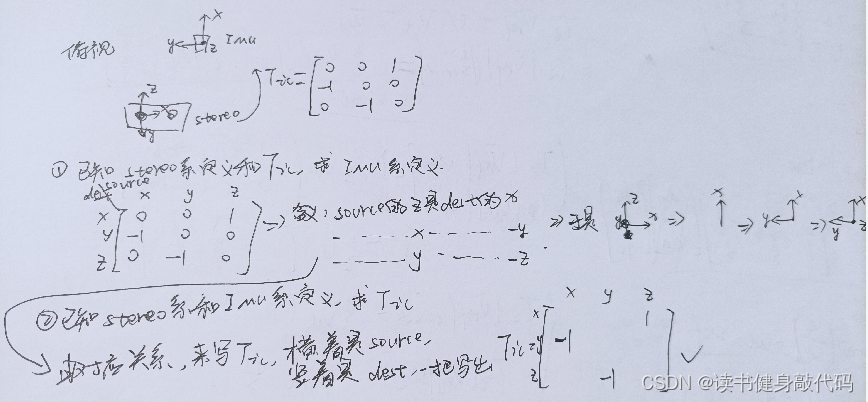 俯视
x
y z Imu
z
x stereo
y
Tic = [0 0 1
-1 0 0
0 -1 0]
① 已知 stereo系定义和Tic, 求 Imu系定义.
dest source
x y z
x [0 0 1
y -1 0 0
z 0 -1 0] => 含义: source的z是dest的x
- - x - - -y
- - y - - -z
=> 于是 z y x => x => y x => x y z
② 已知stereo系和Imu系定义, 求 Tic
由对应关系, 来写Tic, 横着是source,
竖着是dest, 一把写出
x y z
x 1
Tic = y -1
z -1 ✓
CSDN @读书健身敲代码